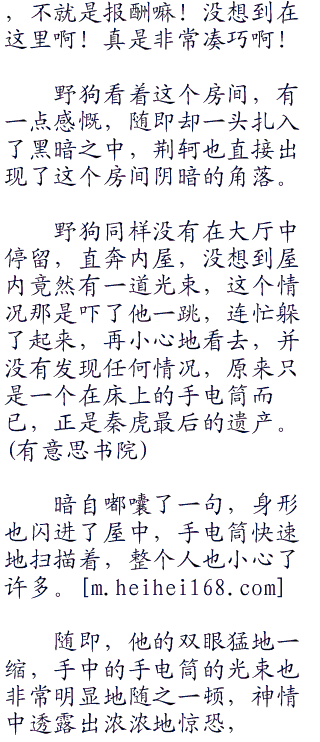 ，不就是报酬嘛！没想到在
这里啊！真是非常凑巧啊！
野狗看着这个房间，有
一点感慨，随即却一头扎入
了黑暗之中，荆轲也直接出
现了这个房间阴暗的角落。
野狗同样没有在大厅中
停留，直奔内屋，没想到屋
内竟然有一道光束，这个情
况那是吓了他一跳，连忙躲
了起来，再小心地看去，并
没有发现任何情况，原来只
是一个在床上的手电筒而
已，正是秦虎最后的遗产。
(有意思书院)
暗自嘟囔了一句，身形
也闪进了屋中，手电筒快速
地扫描着，整个人也小心了
许多。[m.heihei168.com]
随即，他的双眼猛地一
缩，手中的手电筒的光束也
非常明显地随之一顿，神情
中透露出浓浓地惊恐，